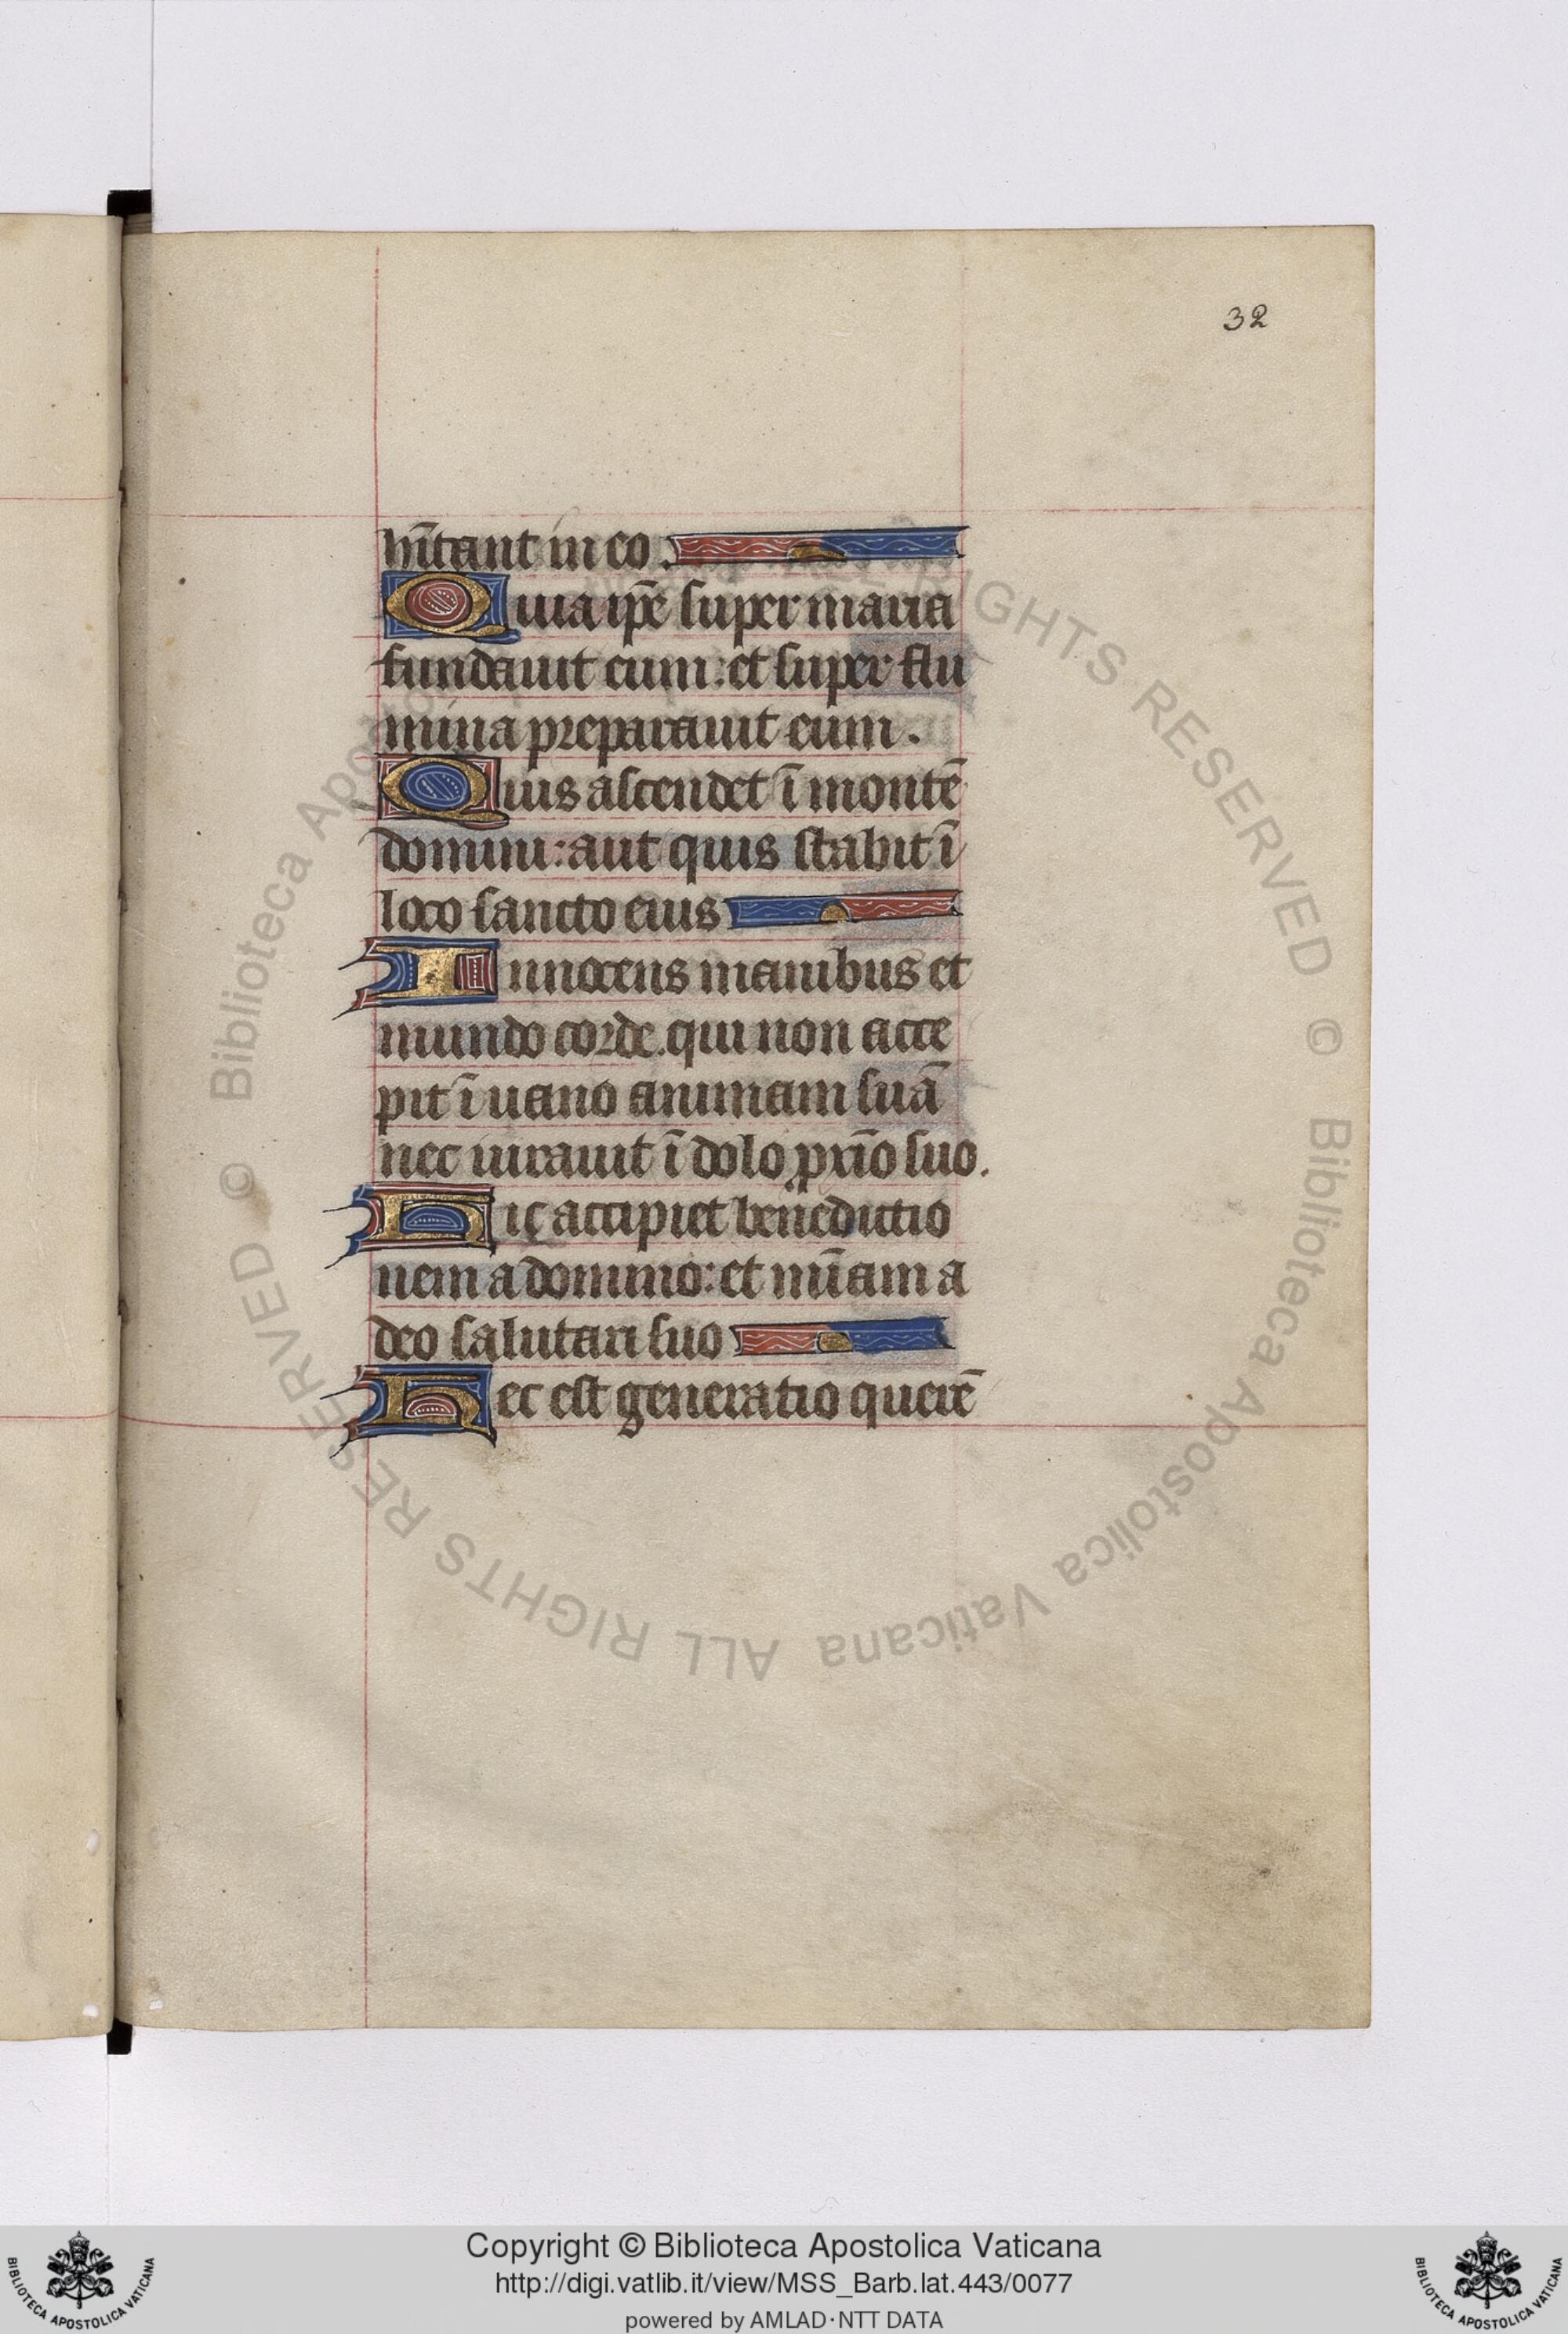 32
hītant in eo.
Quia ip̄e super maria
fundauit eum: et super flu
mina preparauit eum.
Quis ascendet ī montē
domini: aut quis stabit ī
loco sancto eius
Innocens manibus et
mundo corde. qui non acce
pit ī uano animam suā
nec iurauit ī dolo prīo suo.
Hic accipiet benedictio
nem a domino: et mīam a
deo salutari suo
Hec est generatio querē
© Biblioteca Apostolica Vaticana ALL RIGHTS RESERVED © Biblioteca Apostolica Vaticana ALL RIGHTS RESERVED
Copyright © Biblioteca Apostolica Vaticana
http://digi.vatlib.it/view/MSS_Barb.lat.443/0077
powered by AMLAD·NTT DATA
BIBLIOTECA APOSTOLICA VATICANA
BIBLIOTECA APOSTOLICA VATICANA